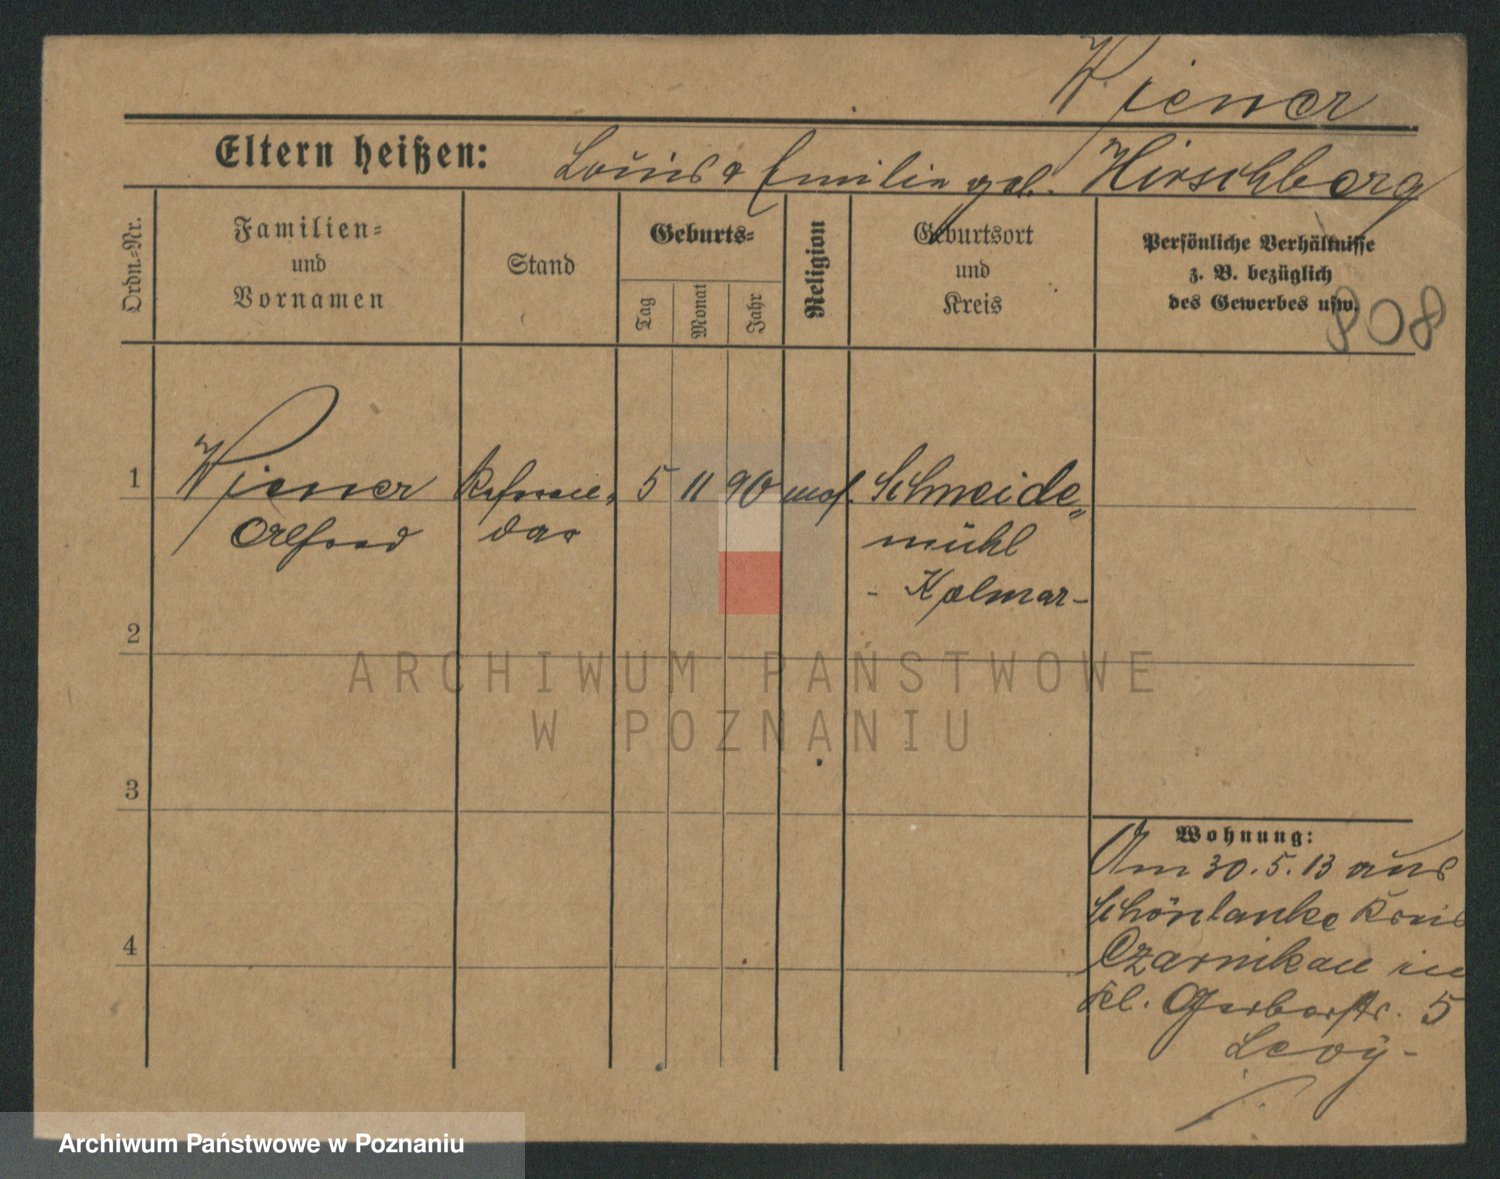 Wiener
Eltern heißen: Louis & Emilie geb. Hirschberg
Ordn.-Nr.
Familien-
und
Vornamen
Stand
Geburts-
Tag
Monat
Jahr
Religion
Geburtsort
und
Kreis
Persönliche Verhältnisse
z. B. bezüglich
des Gewerbes usw.
808
1 Wiener Referen- 5 11 90 mos. Schneide-
Alfred dar mühl
- Kolmar -
2
3
4
Wohnung:
Am 30.5.13 aus
Schönlanke Kreis
Czarnikau in
Kl. Gerberstr. 5
Levy -
ARCHIWUM PAŃSTWOWE
W POZNANIU
Archiwum Państwowe w Poznaniu